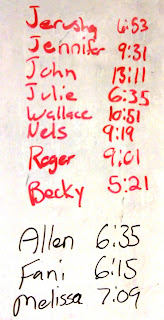 Jerusha 6:53
Jennifer 9:31
John 13:11
Julie 6:35
Wallace 10:51
Nels 9:19
Roger 9:01
Becky 5:21
Allen 6:35
Fani 6:15
Melissa 7:09